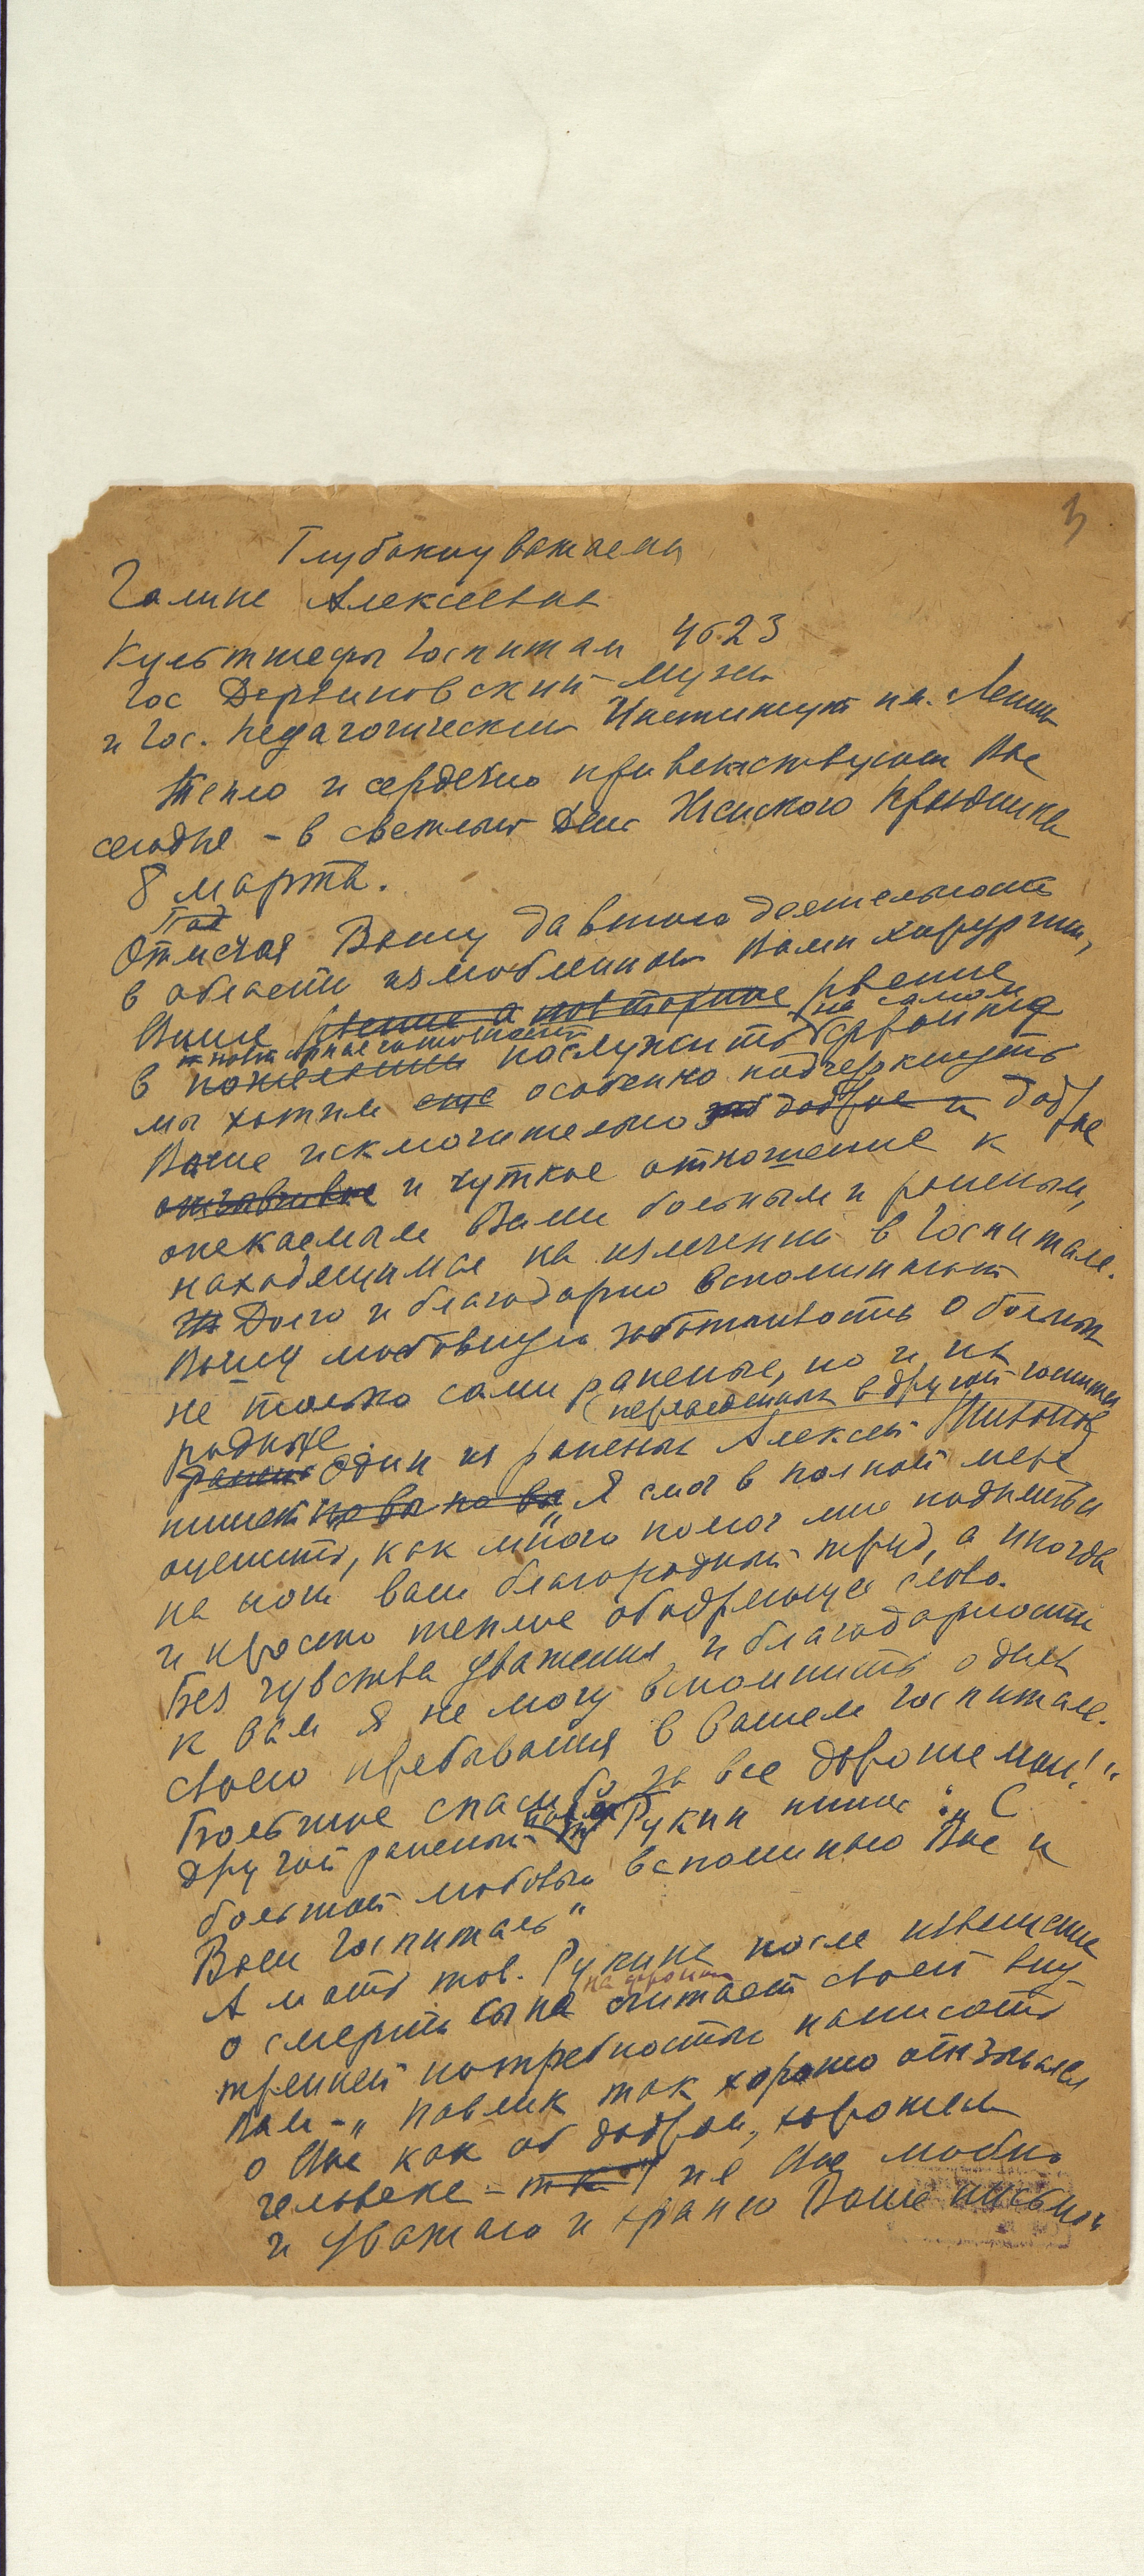 3
Глубокоуважаемая
Галине Алексеевне
Культшефы Госпиталя 4623
Гос Дарвиновский музей
и Гос. Педагогический Институт им. Ленина
Тепло и сердечно приветствуют Вас
сегодня – в светлый День Женского Праздника
8 марта.
Отмечая Вашу давнюю деятельность
в области излюбленной Вами хирургии,
Ваше рвение а повторное рвение
и повторные готовности на самом
в пожелании послужить фронте
мы хотим еще особенно подчеркнуть
Ваше исключительно доброе и доброе
отзывчивое и чуткое отношение к
опекаемым Вами больным и раненым,
находящимся на излечении в Госпитале.
Долго и благодарно вспоминают
Вашу любовную заботливость о больных
не только сами раненые, но и их
(переведенных в другой госпиталь
родные.
Один из раненых Алексей
пишет „Я смог в полной мере
оценить, как много помог мне подняться
на ноги ваш благородный труд, а иногда
и просто теплые ободряющие слова.
Без чувства уважения и благодарности
к вам я не могу вспомнить о днях
своего пребывания в вашем госпитале.
Большое спасибо за все хорошее мои!“
другой раненый Рукин пишет: „С
большой любовью вспоминаю Вас и
Ваш Госпиталь“
А мать тов. Рукина после извещения
на фронте
о смерти сына считает своей вну-
тренней потребностью написать
Вам – „Павлик так хорошо отзывался
о Вас как об добром, хорошем
человеке – я Вас люблю
и уважаю и храню Ваше письмо“